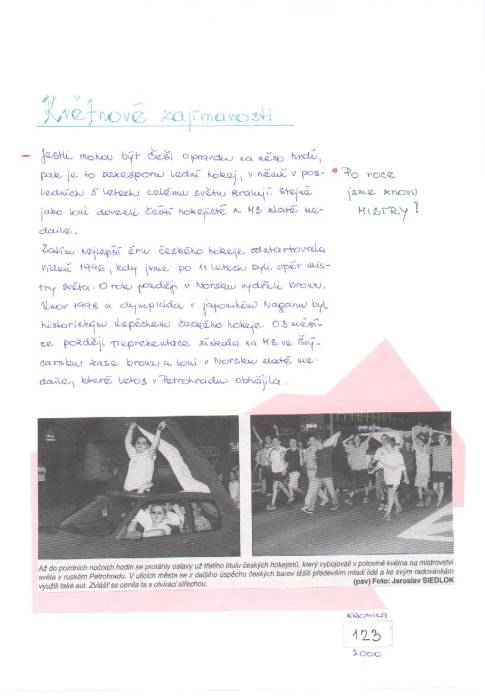 Květnové zajímavosti
– Jestli mohou být Češi opravdu na něco hrdi,
pak je to bezesporu lední hokej, v němž v pos-
ledních 5 letech celému světu kralují. Stejně
jako loni dovezli čeští hokejisté z MS zlaté me-
daile.
Po roce
jsme znovu
MISTRY!
Zatím nejlepší éru českého hokeje odstartovala
Vídeň 1996, kdy jsme po 11 letech byli opět mis-
try světa. O rok později v Norsku vydřeli bronz.
Únor 1998 a olympiáda v japonském Naganu byl
historickým úspěchem českého hokeje. O 3 měsí-
ce později reprezentace získala na MS ve Švý-
carsku zase bronz a loni v Norsku zlaté me-
daile, které letos v Petrohradu obhájila.
Až do pozdních nočních hodin se protáhly oslavy už třetího titulu českých hokejistů, který vybojovali v polovině května na mistrovství
světa v ruském Petrohradu. V ulicích města se z dalšího úspěchu českých barev těšili především mladí lidé a ke svým radovánkám
využili také aut. Zvlášť se cenila ta s otvírací střechou. (pav) Foto: Jaroslav SIEDLOK
KRONIKA
123
2000